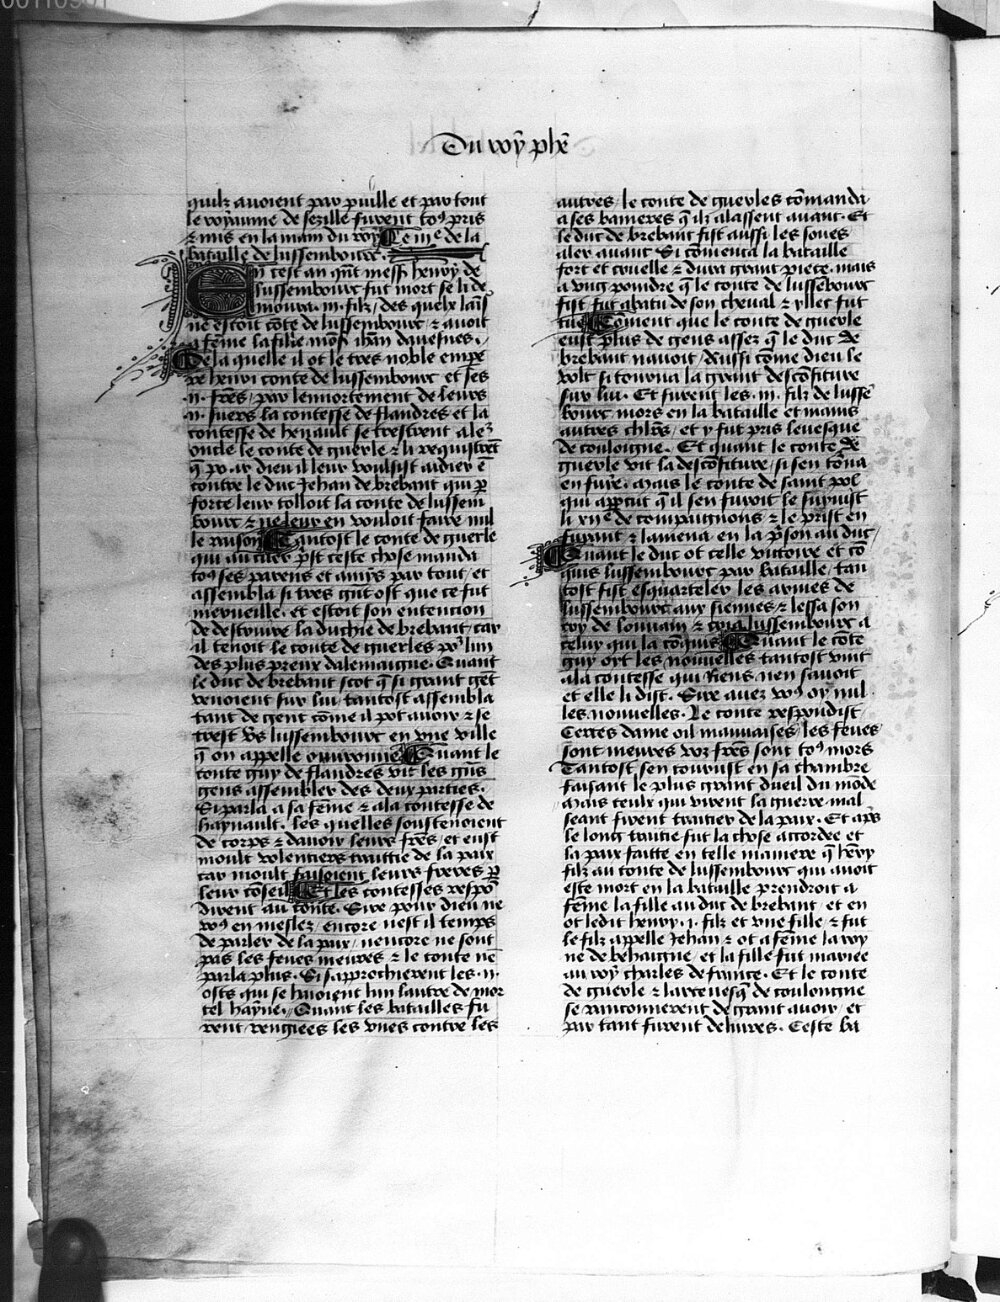 Du roy phe
quilz auoient par puille et par tout
le royaume de sezille furent to⁹ pris
⁊ mis en la main du roy Le iii e de la
bataille de lussembourc.
En cest an qñt mess henry de
lussembourc fut mort se li de
moura .iii. filz / des quelx laisne
estoit cōte de lussembourc ⁊ auoit
a fēme la fille mons iehan dauesnes.
De la quelle il ot le tres noble empe
re henri conte de lussembourc et ses
.ii. fres / par lennortement de leurs
.ii. suers la contesse de flandres et la
contesse de henault se trestrent a le²
oncle le conte de guerle ⁊ li requistrēt
q̄ po² dieu il leur voulsist aidier ē
contre le duc Jehan de brebant qui p̄
force leur tolloit la conte de lussem
bourc ⁊ ne leur en vouloit faire nul
le raison Tantost le conte de guerle
qui au cuer p̄st ceste chose manda
to⁹ ses parens et amys par tout / et
assembla si tres gñt ost que ce fut
merueille. et estoit son entencion
de destruire la duchie de brebant / car
il tenoit le conte de guerles po² lun
des plus preux dalemaigne. Quant
le duc de brebant scot q̄ si grant get
venoient sur lui / tantost assembla
tant de gent cōme il pot auoir ⁊ se
trest v̄s lussembourc en vne ville
q̄ on appelle ouuronne Quant le
conte guy de flandres vit les gn̄s
gens assembler des deux parties.
Si parla a sa fēme ⁊ a la contesse de
haynault. les quelles soustenoient
de corps ⁊ dauoir leurs frēs / et eust
moult volentiers traittie de la paix
car moult faisoient leurs freres p̄
leur cōseil Et les contesses respō
dirent au conte. Sire pour dieu ne
vo⁹ en meslez / encore nest il temps
de parler de la paix / nencore ne sont
pas les feues meures ⁊ le conte nē
parla plus. Si sapprochierent les .ii.
osts qui se haioient lun lautre de mor
tel hayne. Quant les batailles fu
rent rengiees les vnes contre les
autres / le conte de guerles cōmanda
a ses banieres q̄ ilz alassent auant. Et
le duc de brebant fist aussi les soues
aler auant Si cōmenca la bataille
fort et cruelle ⁊ dura grant piece. mais
a vng poindre q̄ le conte de lussēbourc
fist fut abatu de son cheual ⁊ yllec fut
tue Coment que le conte de guerle
eust plus de gens assez q̄ le duc de
brebant nauoit / Aussi cōme dieu le
volt si tourna la grant descōfiture
sur lui. Et furent les .iii. filz de lussē
bourc mors en la bataille et mains
autres chl̄rs / et y fut pris leuesque
de couloigne. Et quant le conte de
guerle vit la descōfiture / si sen tōna
en fuie. mais le conte de saint pol
qui appcut q̄ il sen fuioit le suyuist
li xii e de compaignons ⁊ le prist en
fuiant ⁊ lamena en la p̄son au duc /
Quant le duc ot celle victoire et cō
quis lussembourc par bataille / tan
tost fist esquarteler les armes de
lussembourc aux siennes ⁊ lessa son
cry de louuain ⁊ cria lussembourc a
celuy qui la cōquis Quant le cōte
guy oyt les nouuelles tantost vint
a la contesse qui riens nen sauoit
et elle li dist. Sire auez vo⁹ oy nul
les nouuelles. Le conte respondist
Certes dame oil mauuaises / les feues
sont meures voz frēs sont to⁹ mors
Tantost sen courust en sa chambre
faisant le plus grant dueil du mōde
mais ceulx qui virent la guerre mal
seant firent traitier de la paix. Et aps
le long traitie fut la chose accordee et
la paix faitte en telle maniere q̄ hēry
filz au conte de lussembourc qui auoit
este mort en la bataille prendroit a
fēme la fille au duc de brebant / et en
ot ledit henry .i. filz et vne fille ⁊ fut
le filz appelle Jehan ⁊ ot a fēme la roy
ne de behaigne / et la fille fut mariee
au roy charles de france. Et le conte
de guerle ⁊ larceuesq̄ de couloingne
se raenconnerent de grant auoir / et
par tant furent deliures. Ceste ba